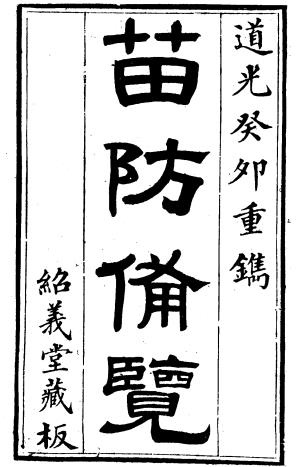 道光癸卯重鐫
苗防備覽
紹義堂藏板